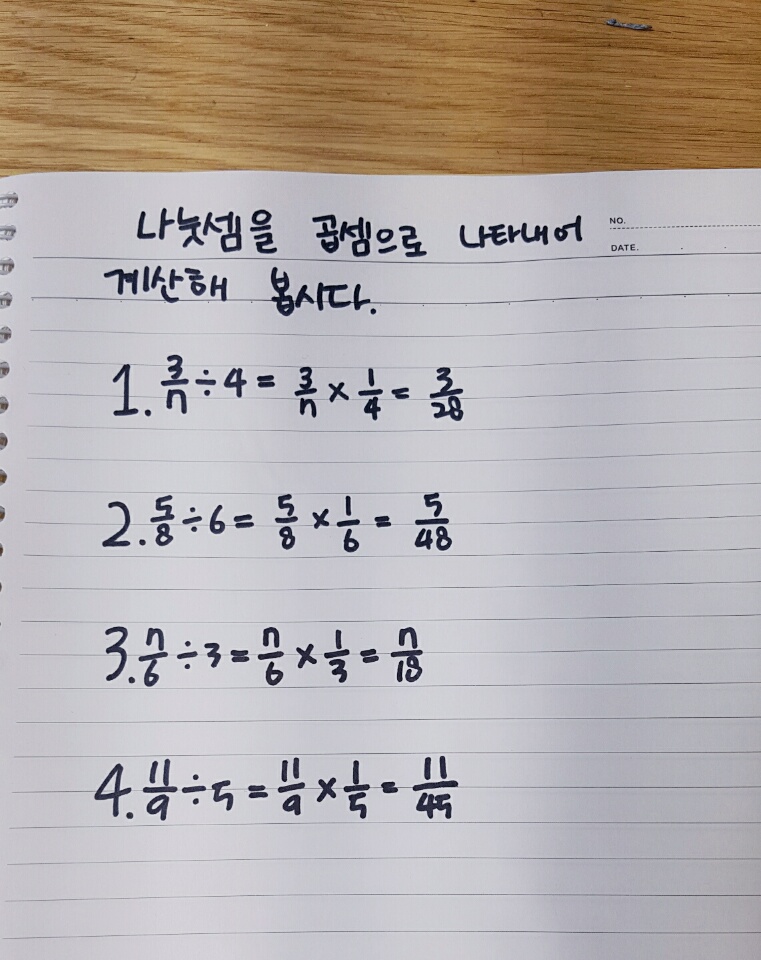 나눗셈을 곱셈으로 나타내어
NO.
DATE.
계산해 봅시다.
1. 3/7 ÷ 4 = 3/7 × 1/4 = 3/28
2. 5/8 ÷ 6 = 5/8 × 1/6 = 5/48
3. 7/6 ÷ 3 = 7/6 × 1/3 = 7/18
4. 11/9 ÷ 5 = 11/9 × 1/5 = 11/45